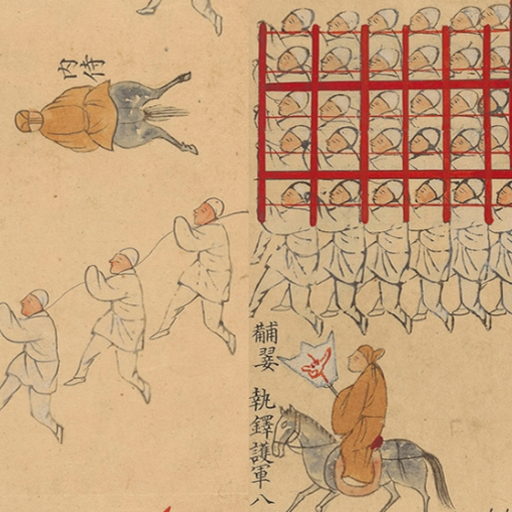 内侍
黼翣
執鐸護軍八